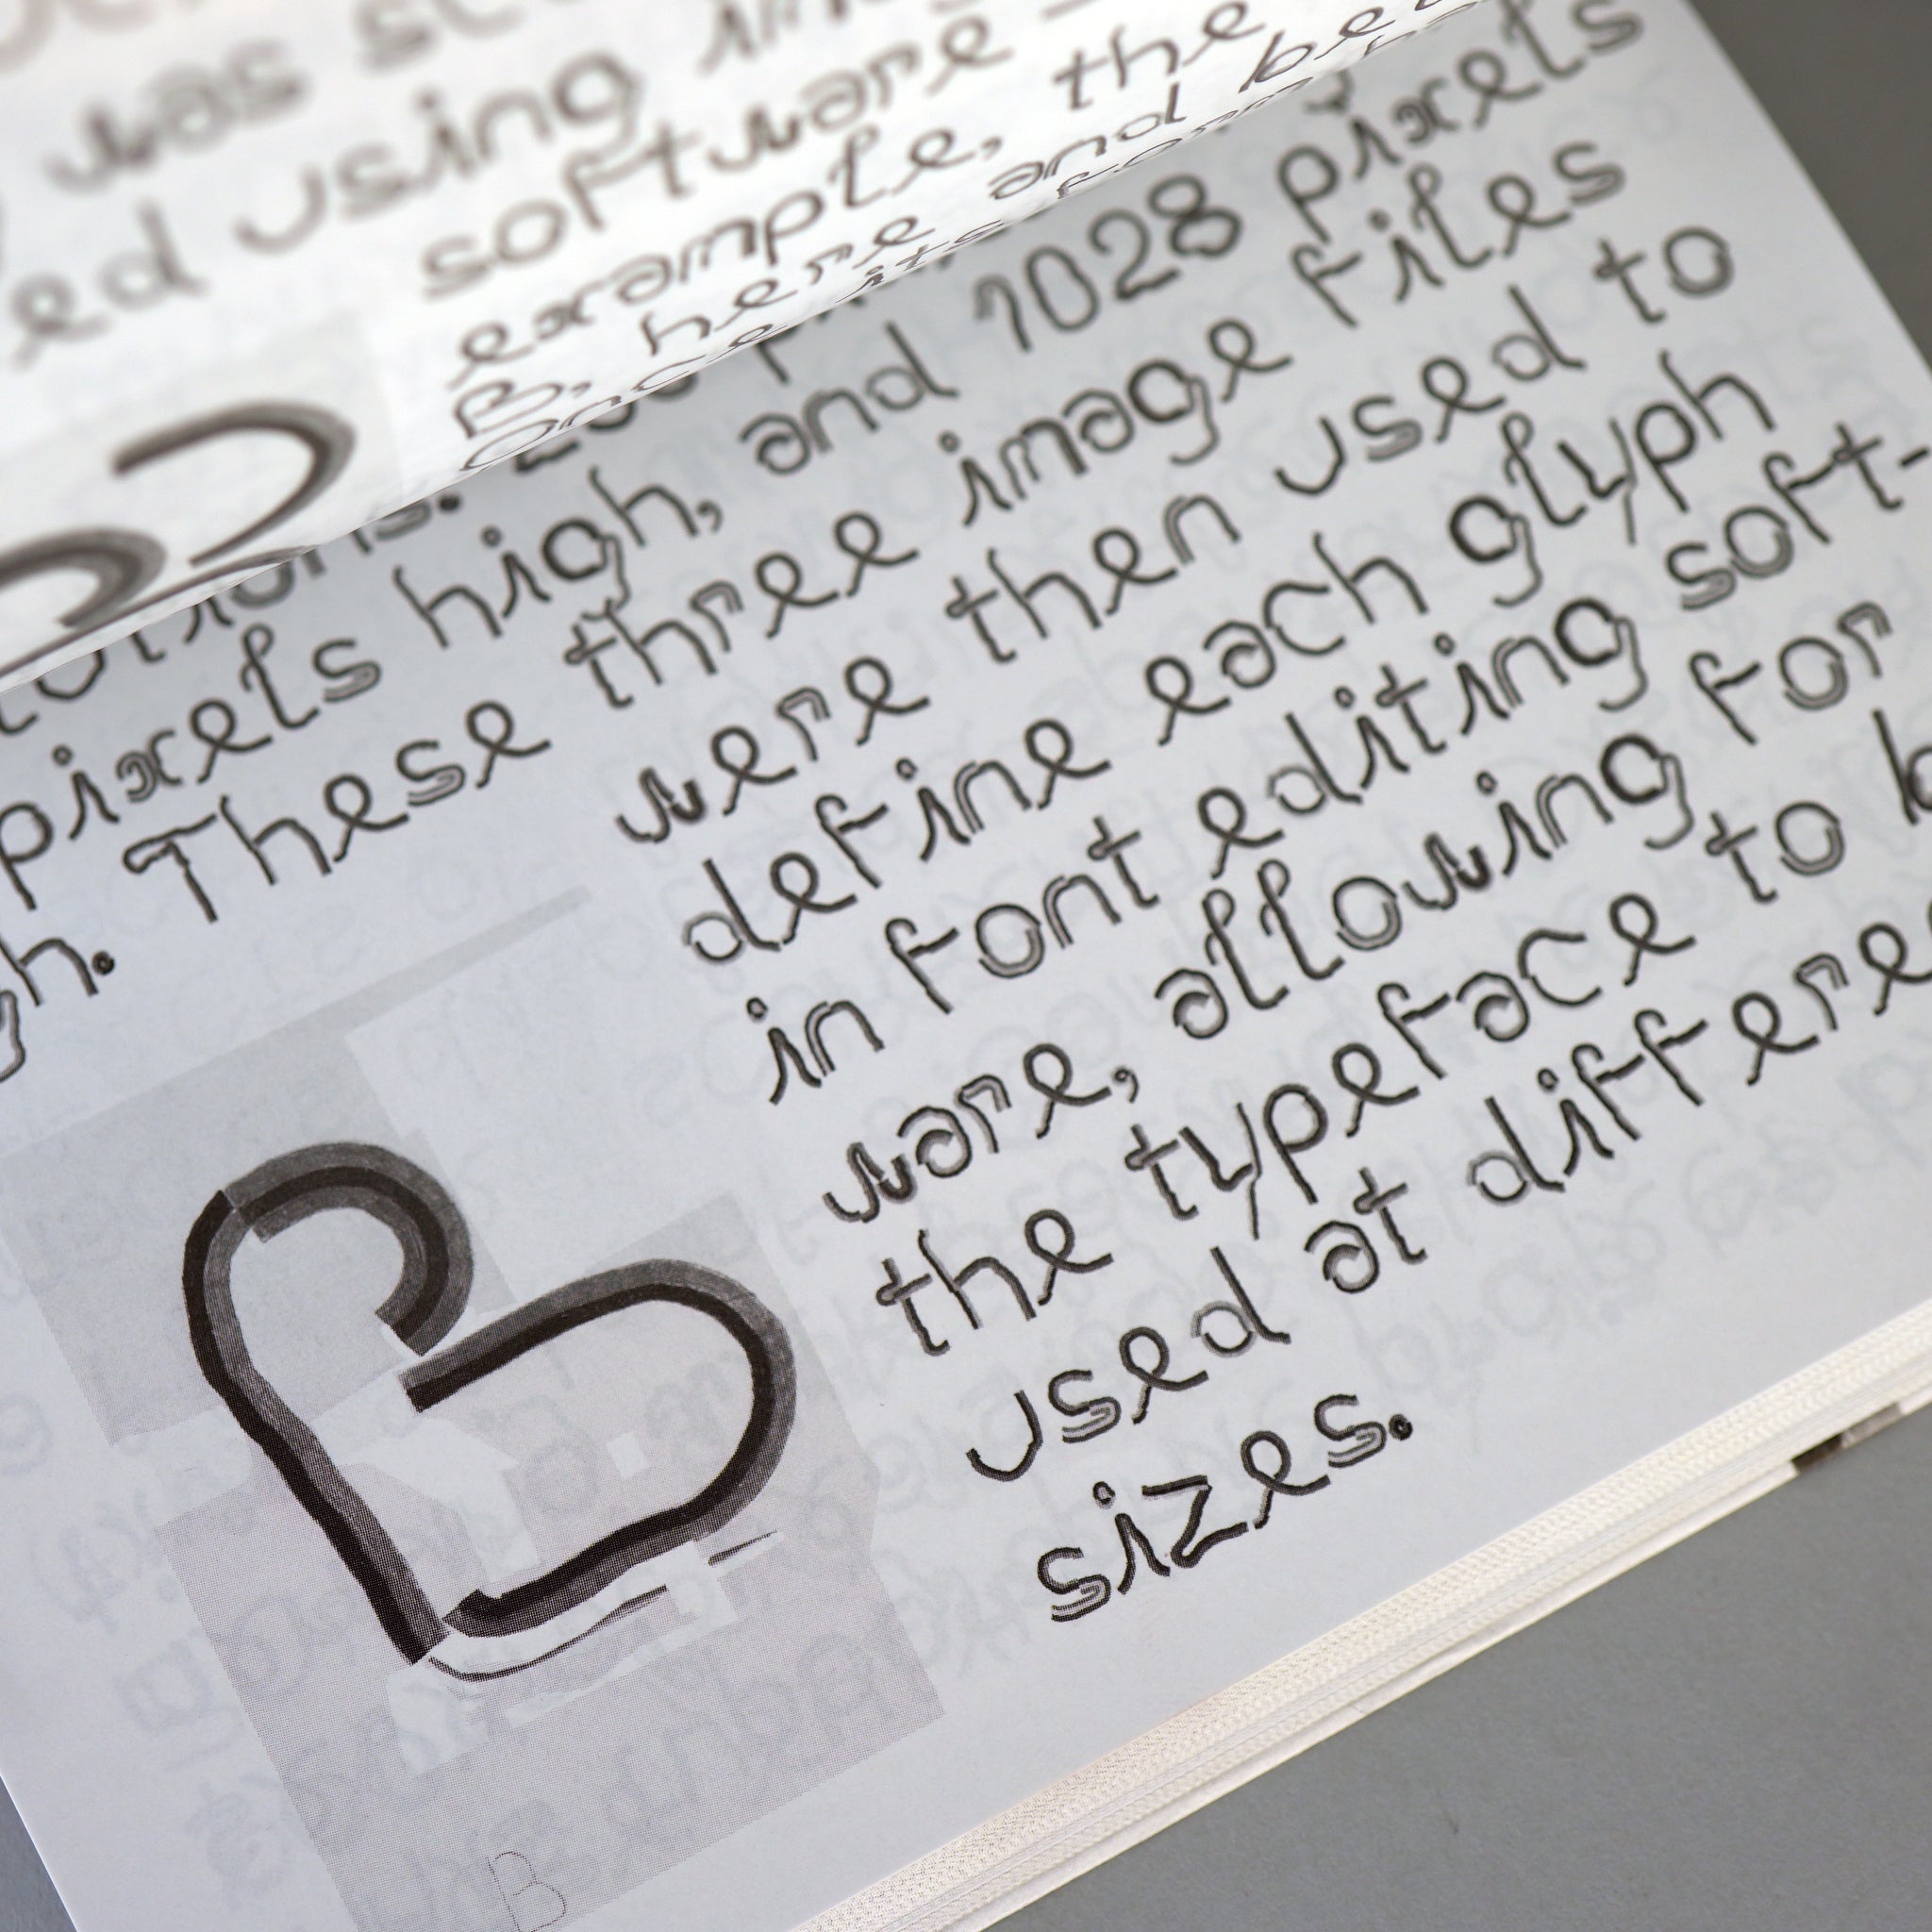 was
ed using
software
example, the
B, here and
Once its
pixels
pixels high, and 1028
gh. These three image files
were then used to
define each glyph
in font editing soft-
ware, allowing for
the typeface to
used at
sizes.
B
B